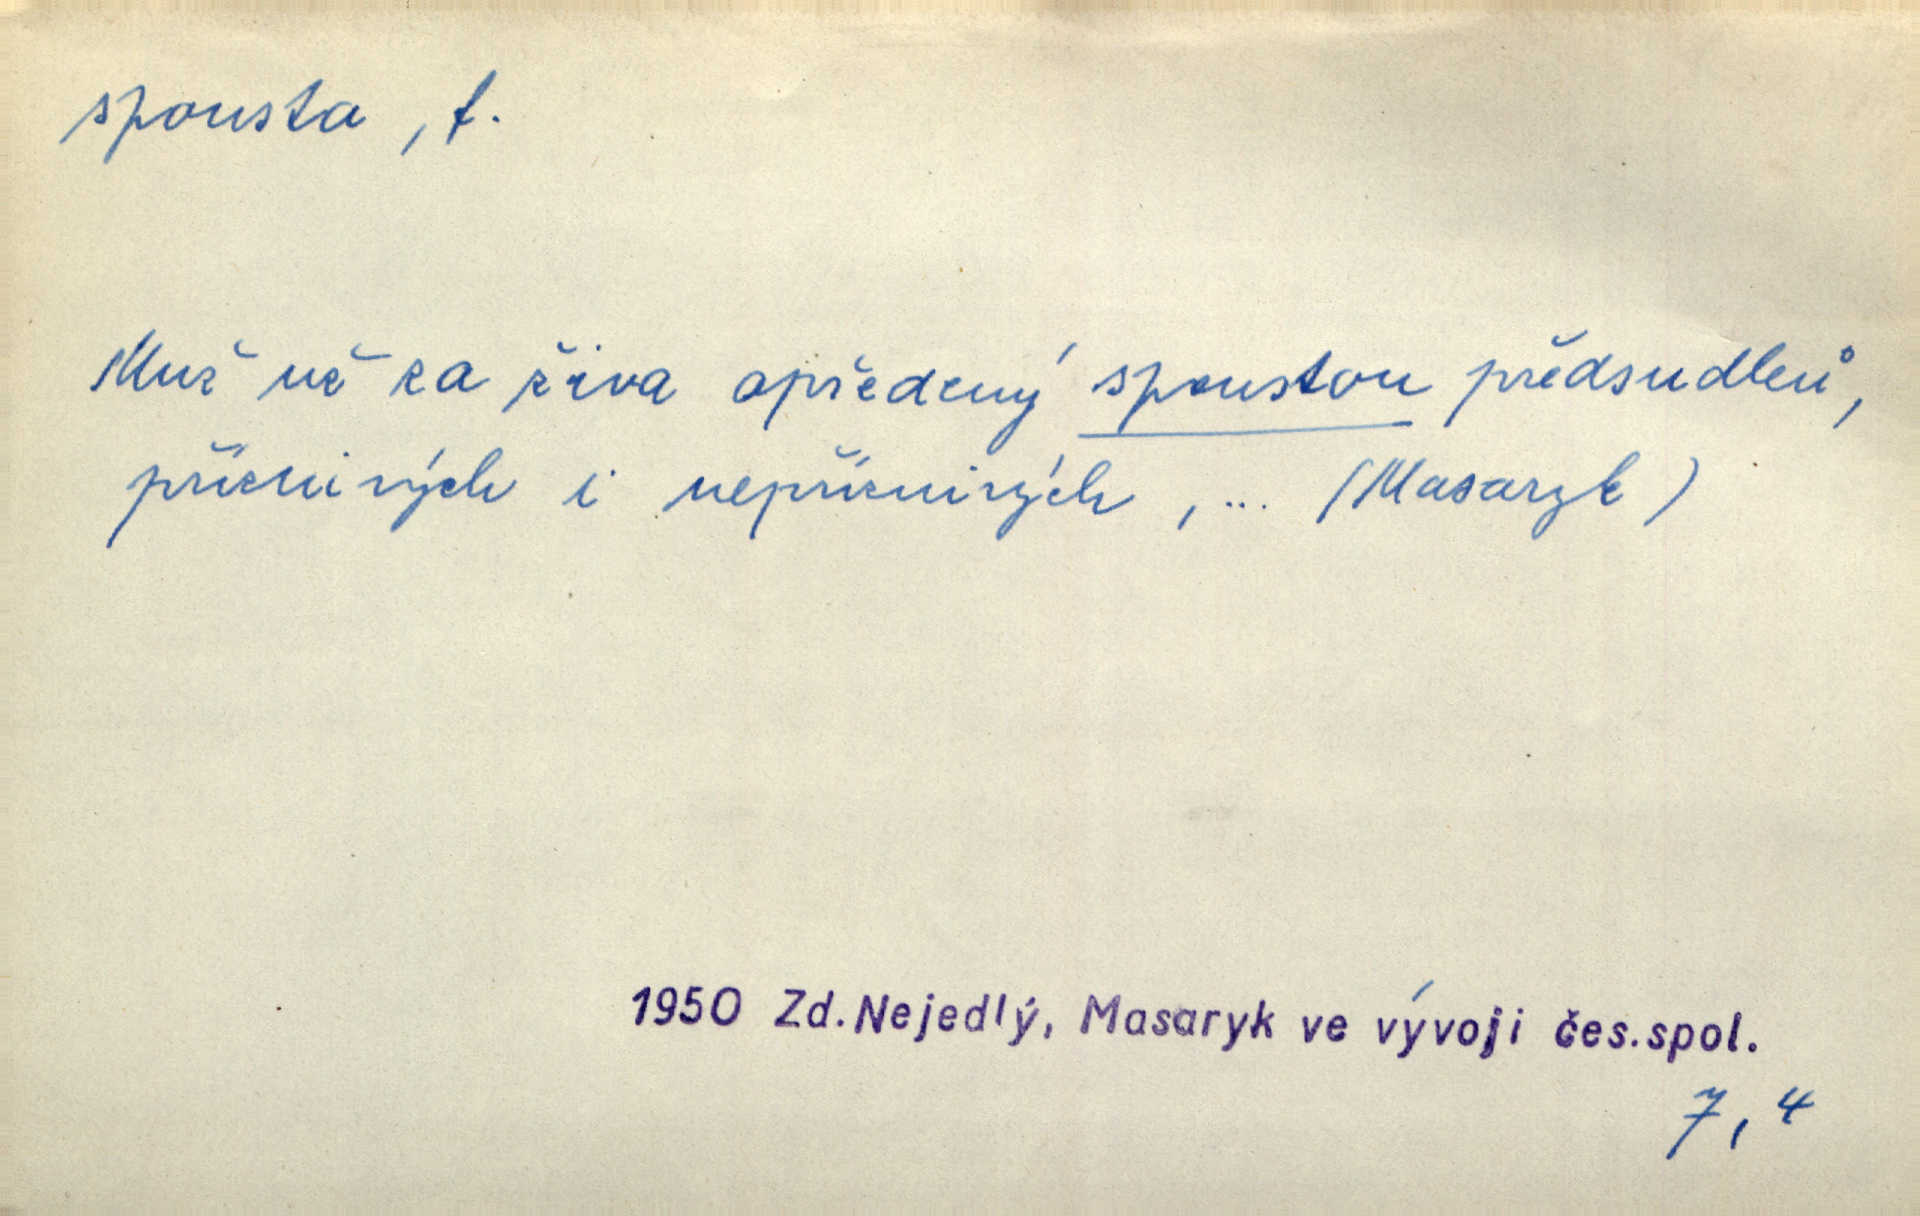 spousta, f.
Muž už za živa opředený spoustou předsudků,
příznivých i nepříznivých, ... (Masaryk)
1950 Zd. Nejedlý, Masaryk ve vývoji čes. spol.
7, 4